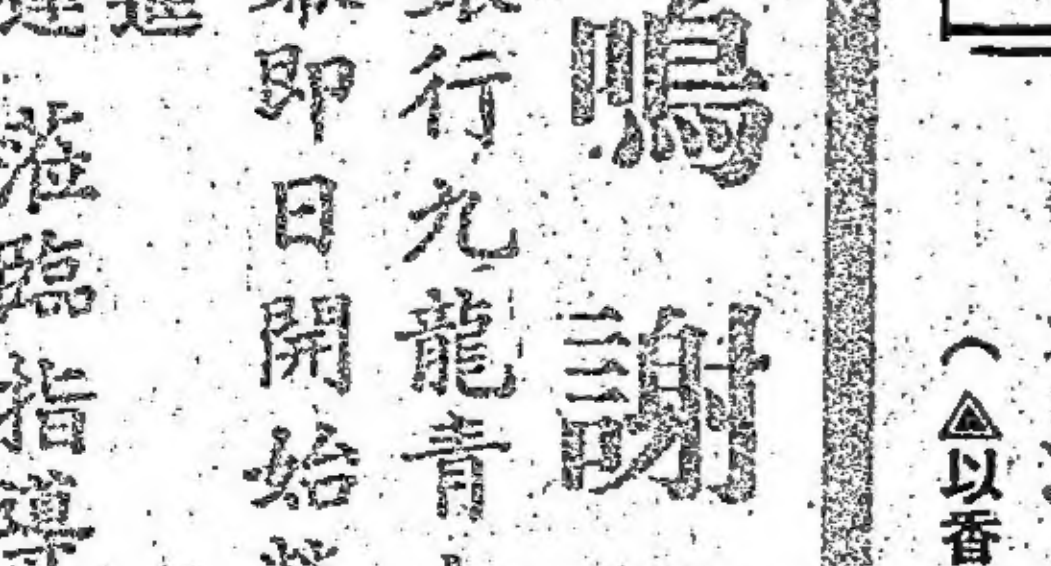 （▲以香
鳴謝
行九龍青
即日開始
蒞臨指導